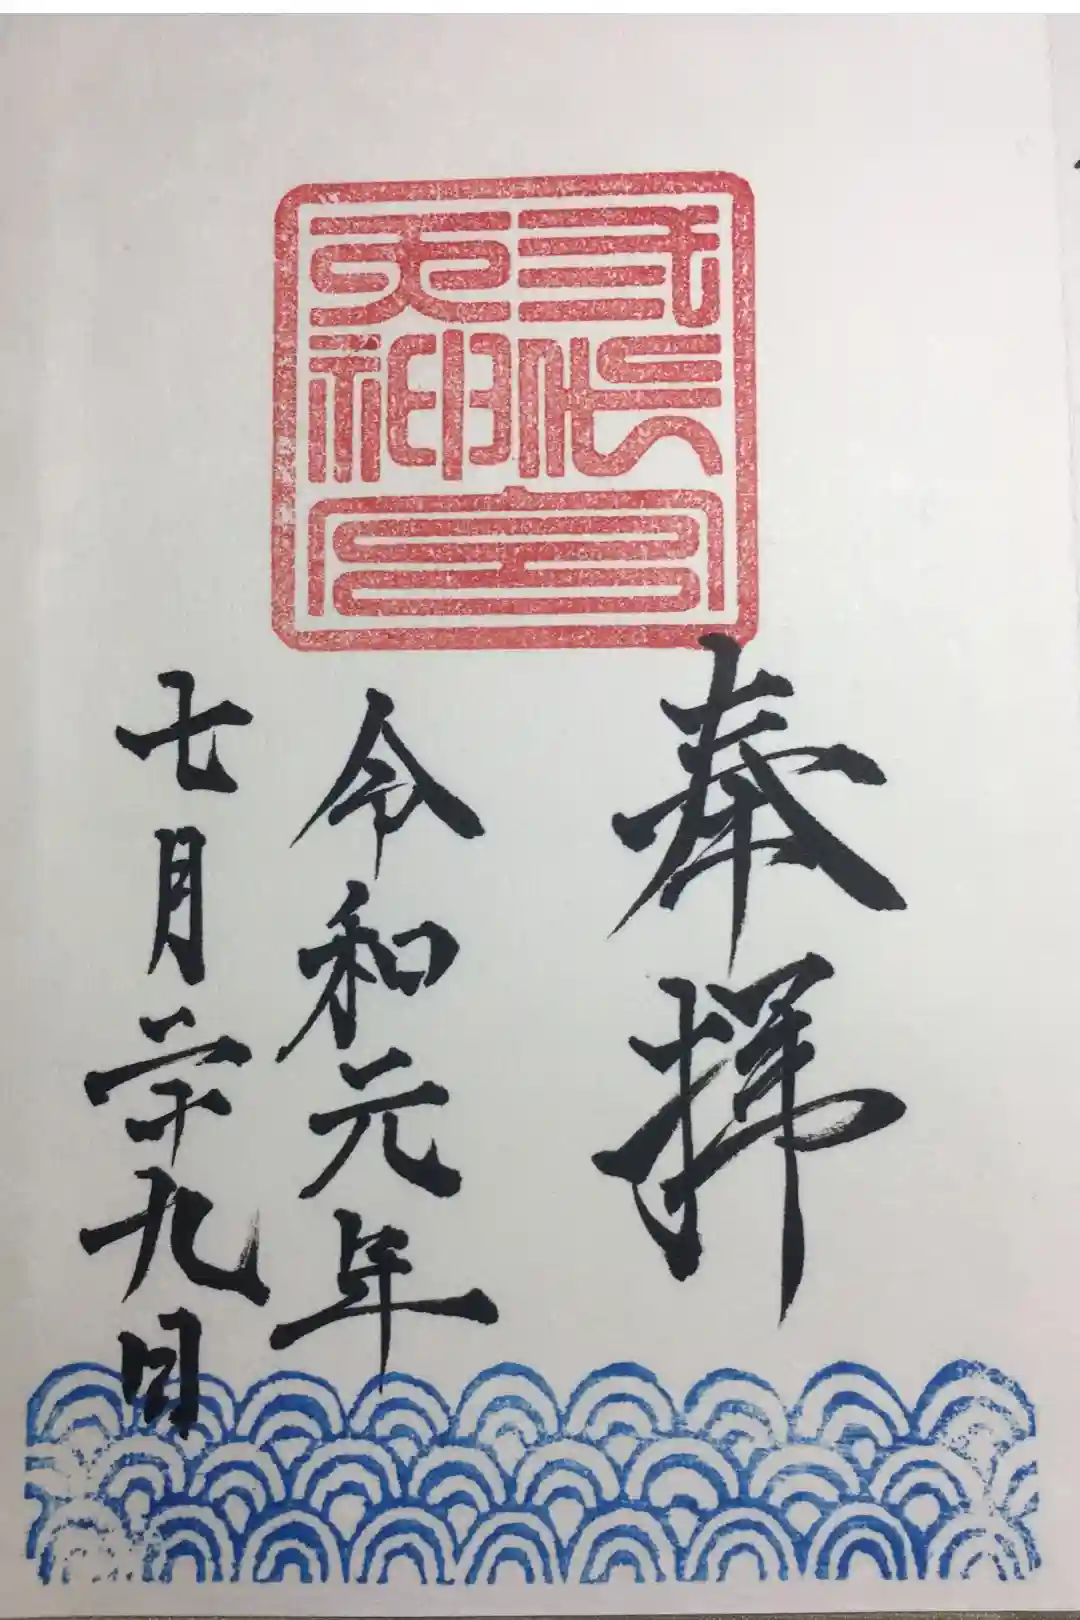 天神宮
奉拝
令和元年
七月二十九日